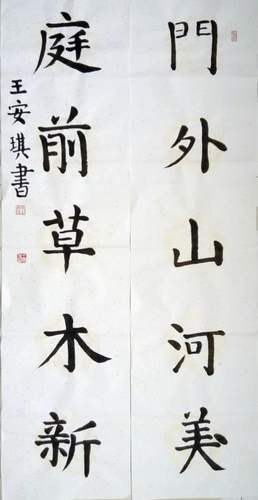 門外山河美
庭前草木新
王安琪書